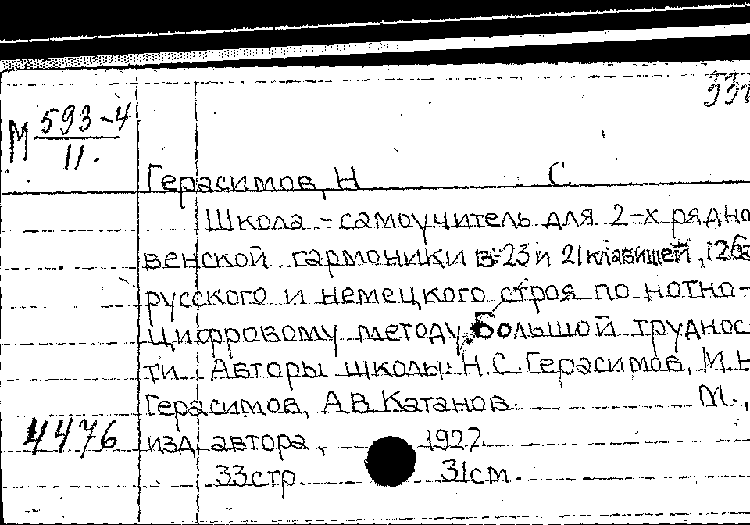 593-4
М
11.
Герасимов, Н С
Школа-самоучитель для 2-х рядно
венской гармоники в 23 и 21 клавишей, 12 ба
русского и немецкого строя по нотно-
цифровому методу. Большой труднос
ти. Авторы школы: Н.С. Герасимов, М.Н
Герасимов, А В Катанов М.,
4476 изд автора, 1927
33 стр 31см.